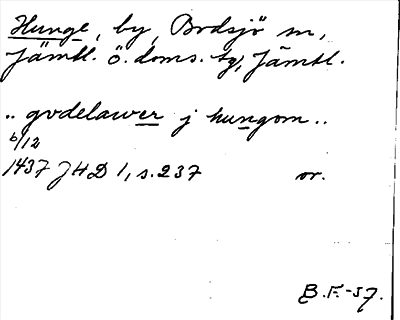 Hunge, by, Brdsjö sn,
Jämtl. ö. doms. tg, Jämtl.
.. gvdelawer j hungom ..
6/12
1437 JHD 1, s. 237 or.
B.F.-57.